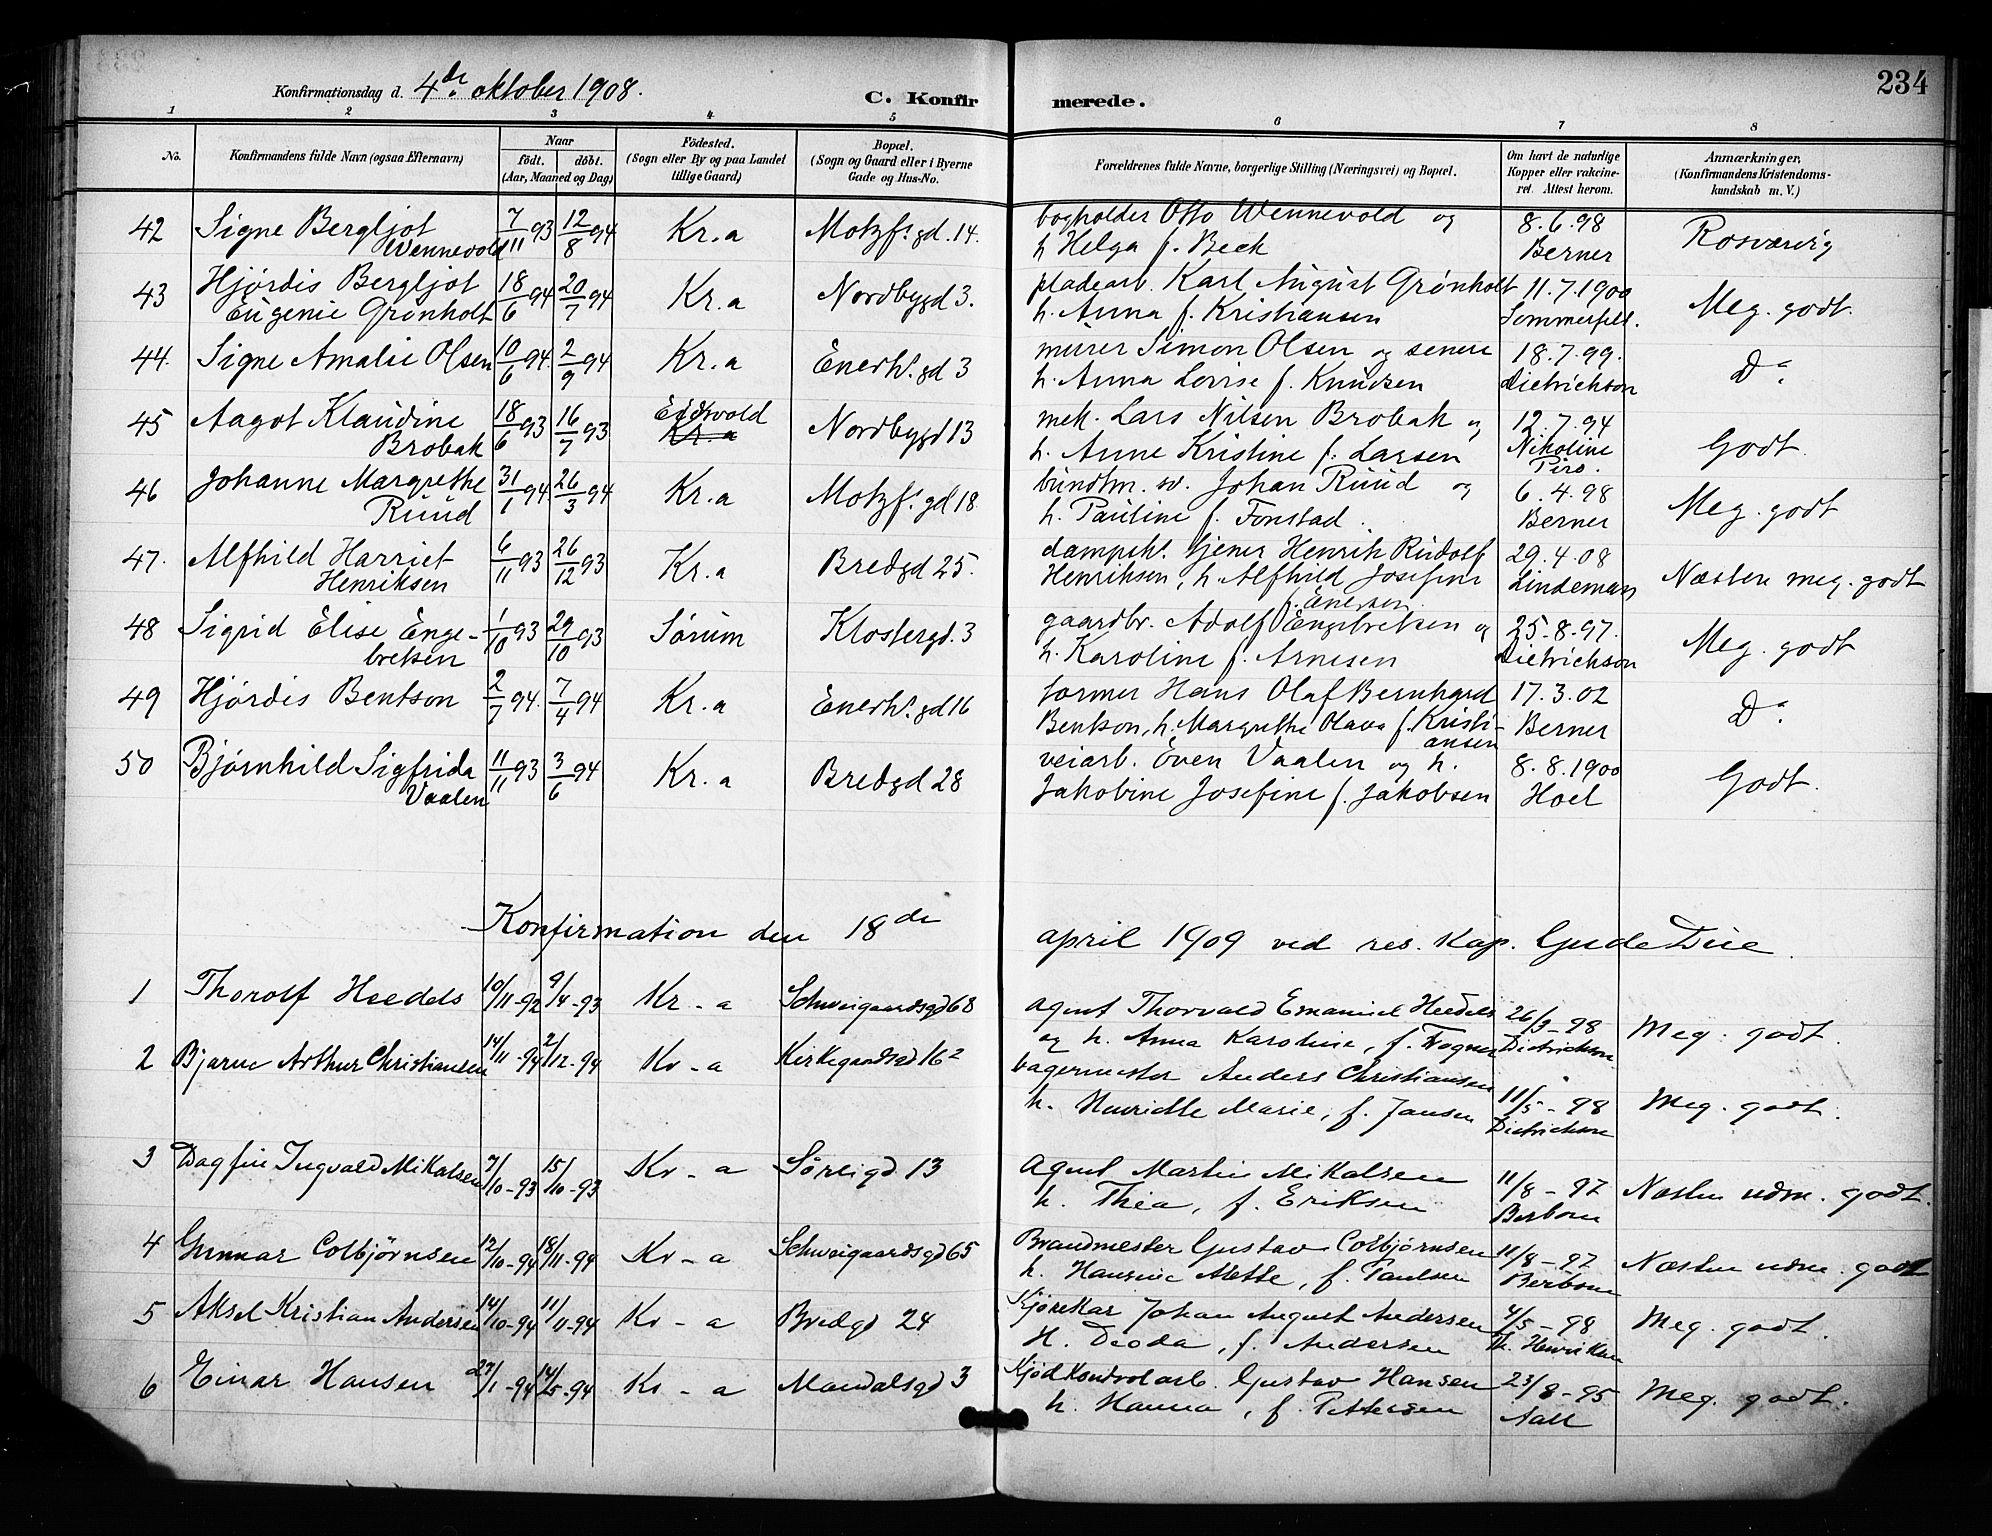 234
Konfirmationsdag d. 4de oktober 1908.
C. Konfirmerede.
1 2 3 4 5 6 7 8
No.
Konfirmandens fulde Navn (ogsaa Efternavn)
Naar
født. døbt.
(Aar, Maaned og Dag)
Fødested.
(Sogn eller By og paa Landet
tillige Gaard)
Bopæl.
(Sogn og Gaard eller i Byerne
Gade og Hus-No.
Forældrenes fulde Navne, borgerlige Stilling (Næringsvei) og Bopæl.
Om havt de naturlige
Kopper eller vakcine-
ret. Attest herom.
Anmærkninger,
(Konfirmandens Kristendoms-
kundskab m. V.)
42 Signe Bergljot 7/11 93 12/8 94 Kr.a Motzf.gd. 14. bogholder Otto Wennevold og 8.6.98
Wennevold h Helga f. Beck Berner
43 Hjørdis Bergljot 18/6 94 20/7 94 Kr.a Nordbygd 3. pladearb. Karl August Grønholt 11.7.1900 Meg. godt.
Eugenie Grønholt h. Anna f. Kristiansen Sommerfelt.
44. Signe Amalie Olsen 10/6 94. 2/9 94 Kr.a Enerh.gd 3 murer Simon Olsen og senere 18.7.99. Do
h. Anna Lovise f. Knudsen Dietrichson
45 Aagot Klaudine 18/6 93 16/7 93 Eidsvold Nordbygd 13 mek. Lars Nilsen Brobak og 12.7.94 Godt.
Brobak Kr.a h. Anne Kristine f. Larsen Nikoline
Piro.
46 Johanne Margrethe 31/1 94 26/3 94 Kr.a Motzf.gd 18. bundtm. sv. Johan Ruud og 6.4.98 Meg. godt
Ruud h. Pauline f. Fonstad. Berner
47. Alfhild Harriet 6/11 93 26/12 93 Kr.a Bredgd 25. dampsk. tjener Henrik Rudolf 29.4.08 Næsten meg. godt
Henriksen Henriksen, h. Alfhild Josefine Lindeman
f. Enersen
48 Sigrid Elise Enge- 1/10 93 29/10 93 Sørum Klostergd. 3 gaardbr. Adolf Engebretsen og 25.8.97. Meg. godt
bretsen h. Karoline f. Arnesen Dietrichson
49 Hjørdis Bentson 2/7 94. 7/4 94 Kr.a Enerh.gd 16 former Hans Olaf Bernhard 17.3.02 Do
Bentson, h. Margrethe Olava f. Kristi- Berner
ansen
50 Bjørnhild Sigfrida 11/11 93 3/6 94 Kr.a Bredgd 28 veiarb. Even Vaalen og h. 8.8.1900 Godt.
Vaalen Jakobine Josefine f. Jakobsen Hoel
Konfirmation den 18de april 1909 ved res. Kap. Gude Due.
1 Thorolf Heedels 10/11-92 9/4-93 Kr-a Schweigaardsgd 68 agent Thorvald Emanuel Heedels 26/3-98 Meg. godt.
og h. Anna Karoline, f. Wogner Dietrichson
2 Bjarne Arthur Christiansen 14/11-94 2/12-94 Kr-a Kirkegaardsgd 16² bagermester Anders Christiansen 11/5-98 Meg. godt.
h. Henriette Marie, f. Jansen Dietrichson
3 Dagfin Ingvald Mikalsen 7/10-93 15/10-93 Kr-a Sørligd 13 agent Martin Mikalsen 11/8-97 Næsten udm. godt.
h. Thea, f. Eriksen
4 Gunnar Colbjørnsen 12/10-94 18/11-94 Kr-a Schweigaardsgd 65 Brandmester Gustav Colbjørnsen 11/8-97 Næsten udm. godt
h. Hansine Mette, f. Paulsen
5 Aksel Kristian Andersen 14/10-94 11/11-94 Kr-a Bredgd 24 Kjørekar Johan August Andersen 4/5-98 Meg. godt.
H. Deoda, f. Andersen Th. Henriksen
6 Einar Hansen 27/1-94 14/5-94 Kr-a Mandalsgd 3 Kjødkontrolarb. Gustav Hansen 23/8-95 Meg. godt.
h. Hanna, f. Pettersen Aall